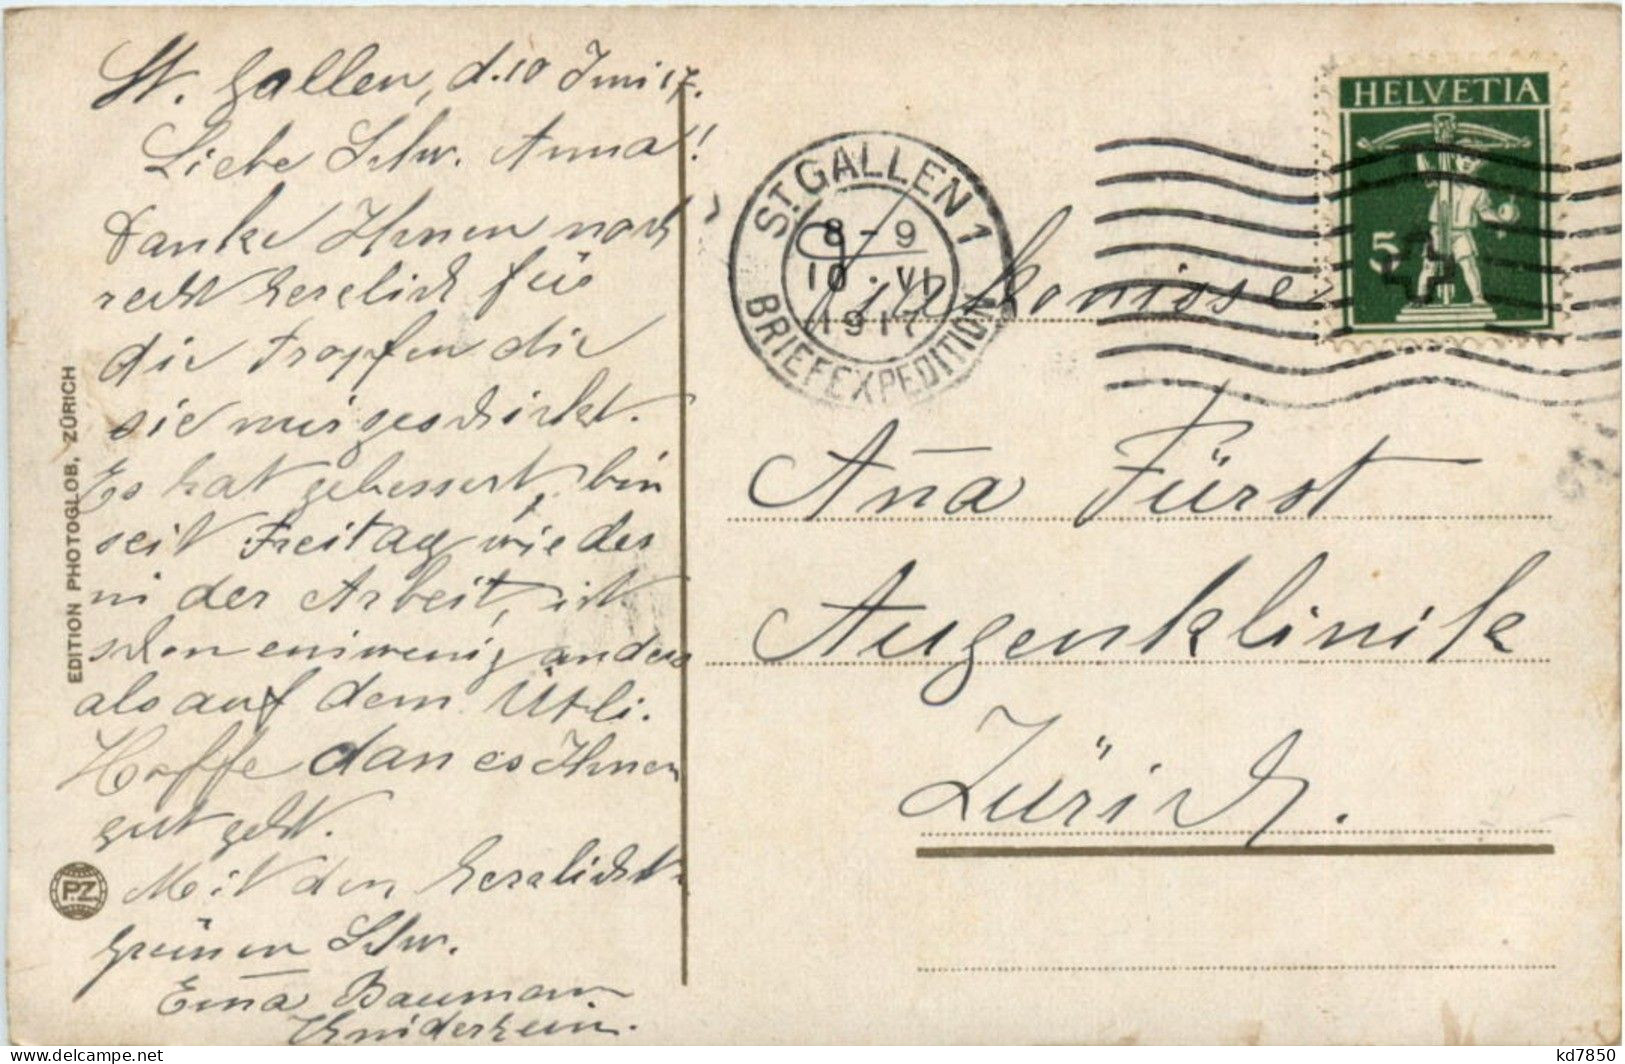 St. Gallen, d. 10 Juni 17.
Liebe Schw. Anna!
Danke Ihnen noch
recht herzlich für
die Tropfen die
sie mir geschickt.
Es hat gebessert, bin
seit Freitag wieder
in der Arbeit, ist
schon ein wenig anders
als auf dem Ütli.
Hoffe dan es Ihnen
gut geht.
Mit den herzlichst
Grüssen Schw.
Em̄a Baumann
EDITION PHOTOGLOB, ZÜRICH
P.Z
ST. GALLEN 1
8-9
10.VI
1917
BRIEFEXPEDITION
HELVETIA
5
Diakonisse
An̄a Fürst
Augenklinik
Zürich.
kd7850